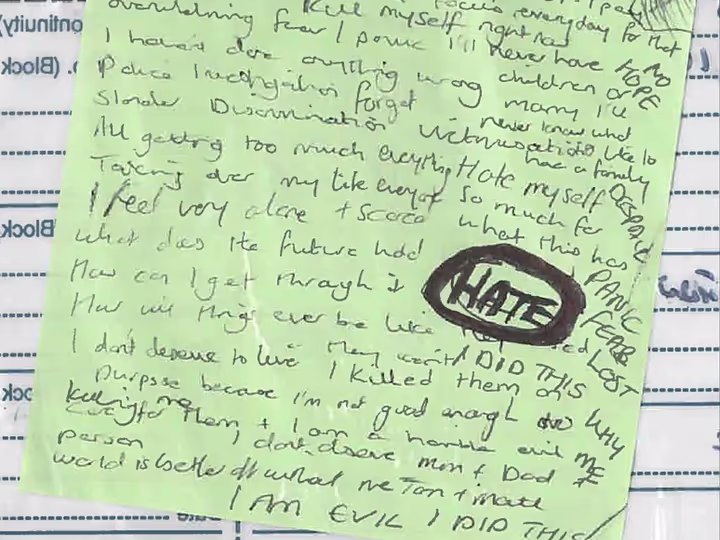 overwhelming fear / Kill myself right now focus everyday for that
I panic I'll never have NO HOPE
I haven't done anything wrong children or
Police Investigation forget marry I'll
Slander Discrimination Victimisation never know what
All getting too much everything Hate myself had a family
Taking over my life everyone so much for DESPAIR
I feel very alone + scared what this has
What does the future hold PANIC
How can I get through it HATE FEAR
How will things ever be like LOST
I don't deserve to live They I DID THIS
I killed them on WHY
purpose because I'm not good enough ME
killing me care for them + I am a horrible evil
person I don't deserve mum + Dad +
world is better off without me Tom + matt
I AM EVIL I DID THIS
ontinuity
o. (Block
Block
Block
ock
Date